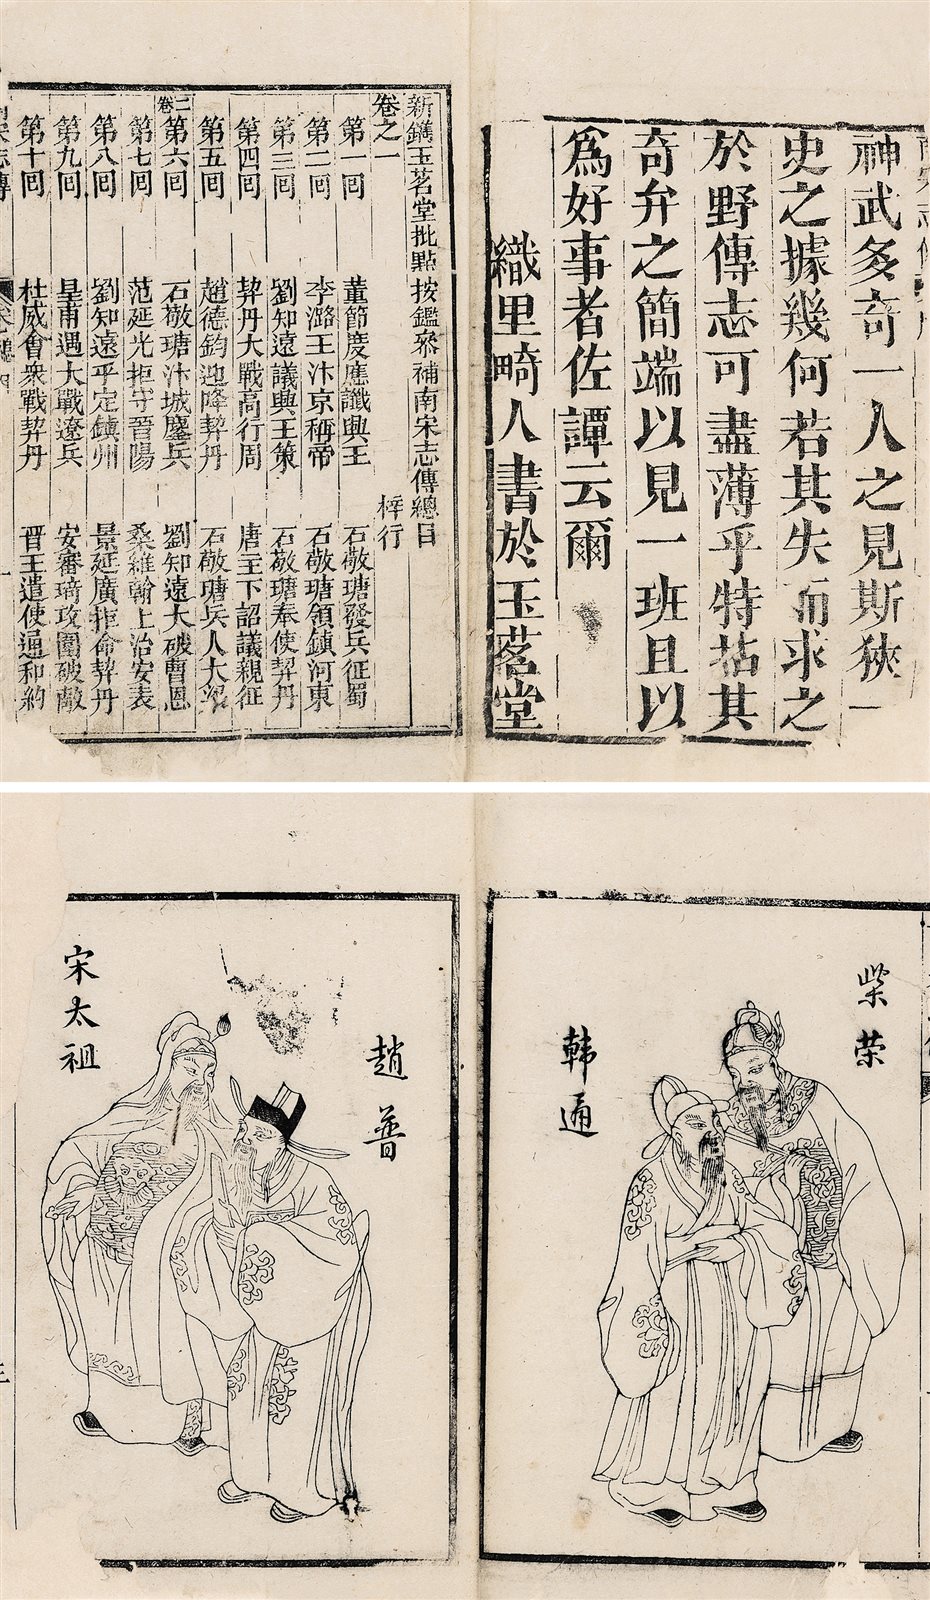 神武多奇一人之見斯狹一
史之據幾何若其失而求之
於野傳志可盡薄乎特拈其
奇弁之簡端以見一班且以
爲好事者佐譚云爾
織里畸人書於玉茗堂
新鐫玉茗堂批點按鑑叅補南宋志傳總目
卷之一
梓行
第一回 董節度應讖興王 石敬瑭發兵征蜀
第二回 李潞王汴京稱帝 石敬瑭領鎮河東
第三回 劉知遠議興王策 石敬瑭奉使契丹
第四回 契丹大戰高行周 唐主下詔議親征
第五回 趙德鈞迎降契丹 石敬瑭兵入大梁
二卷
第六回 石敬瑭汴城鏖兵 劉知遠大破曹恩
第七回 范延光拒守晉陽 桑維翰上治安表
第八回 劉知遠平定鎮州 景延廣拒命契丹
第九回 皇甫遇大戰遼兵 安審琦攻圍破敵
第十回 杜威會衆戰契丹 晋王遣使通和約
柴荣
韩通
趙普
宋太祖